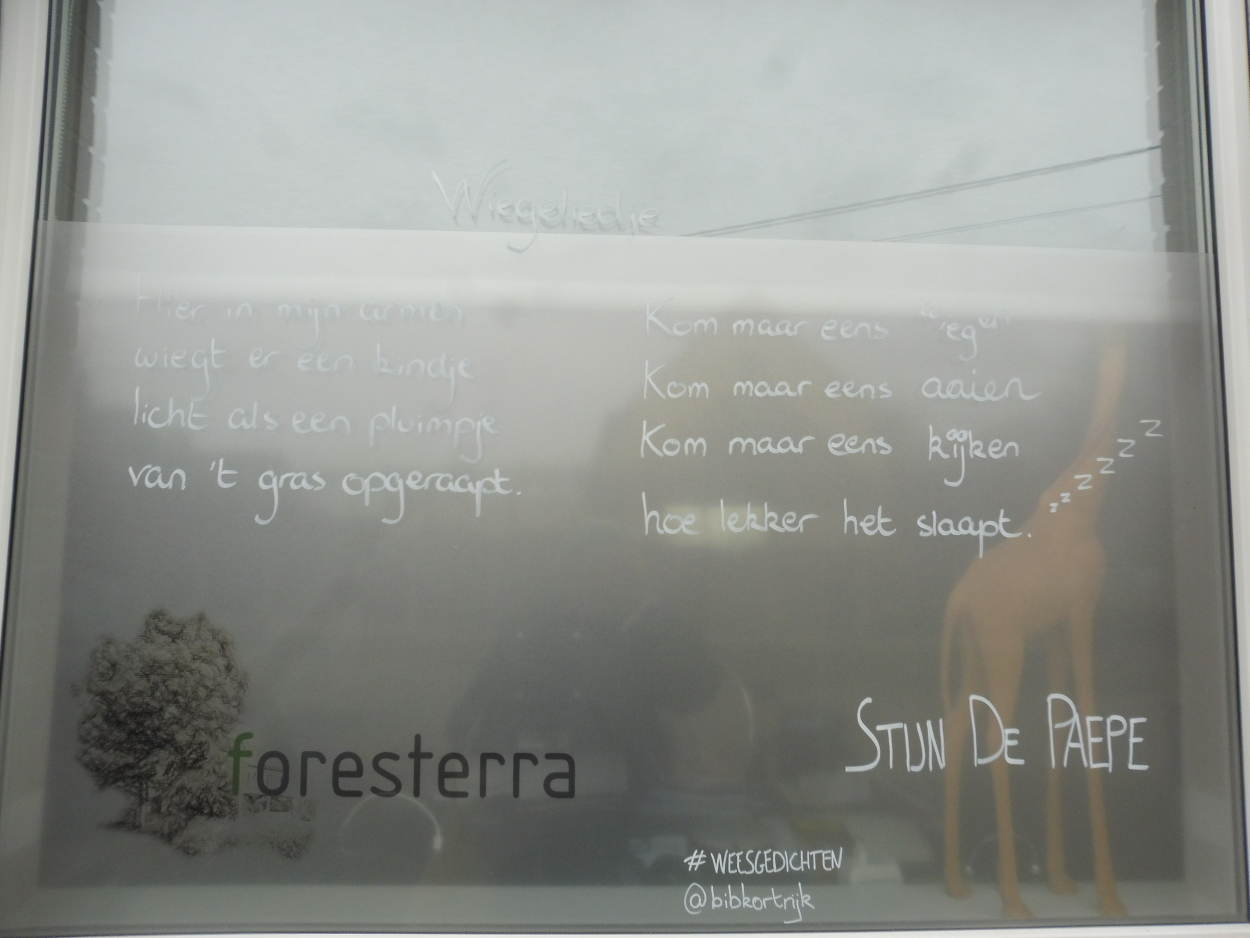 Wiegeliedje
Hier in mijn armen
wiegt er een kindje
licht als een pluimpje
van 't gras opgeraapt.
Kom maar eens
Kom maar eens aaien
Kom maar eens kijken
hoe lekker het slaapt. z z z z z z
foresterra
STIJN DE PAEPE
# WEESGEDICHTEN
@bibkortrijk